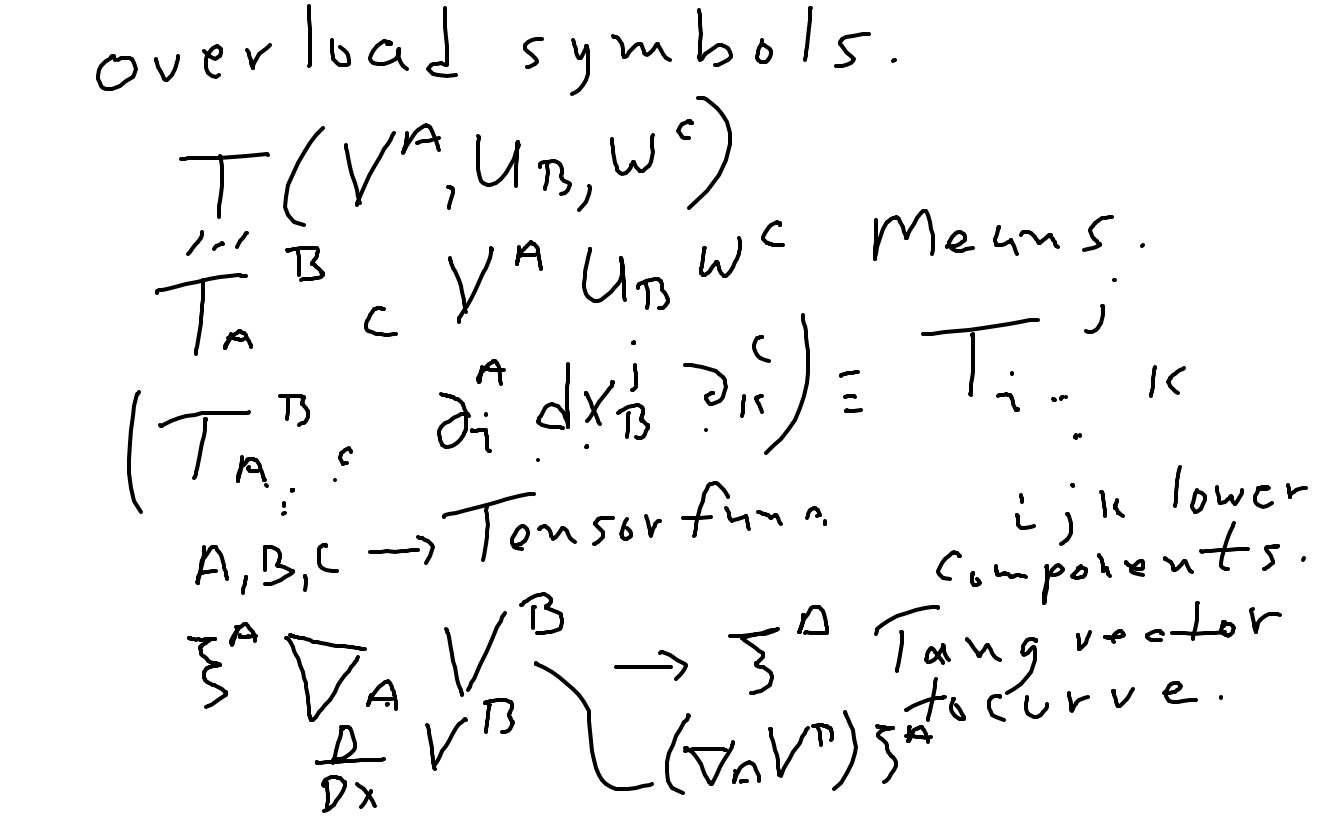 overload symbols.
T(V^A, U_B, W^C)
T_A^B_C V^A U_B W^C Means.
(T_A^B_C ∂_i^A dx_B^j ∂_k^C) ≡ T_i^j_k
A, B, C → Tensor func i j k lower
components.
ξ^A ∇_A V^B → ξ^A Tang vector
to curve.
D/Dx V^B (∇_A V^B) ξ^A